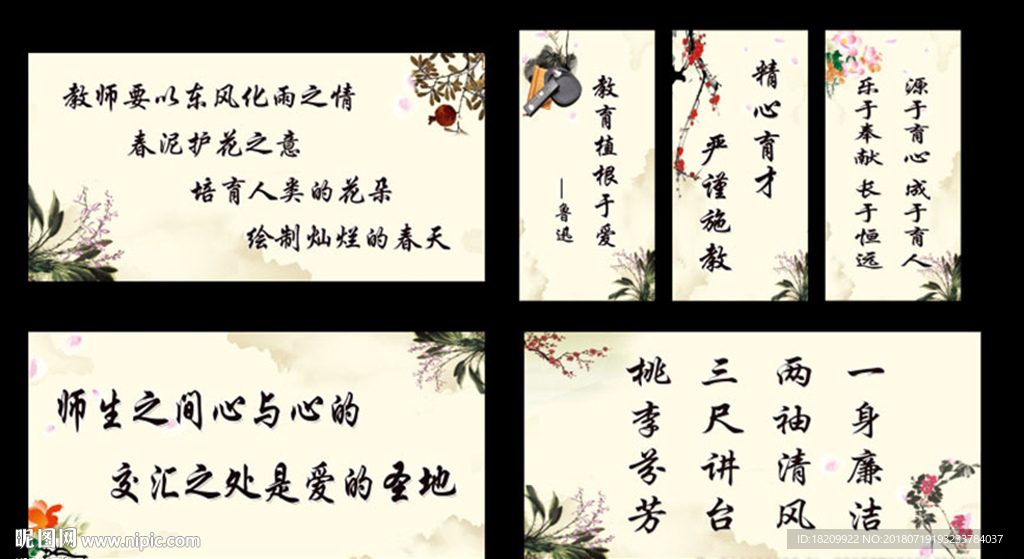 教师要以东风化雨之情
春泥护花之意
培育人类的花朵
绘制灿烂的春天
教育植根于爱
—鲁迅
精心育才
严谨施教
源于育心 成于育人
乐于奉献 长于恒远
师生之间心与心的
交汇之处是爱的圣地
一身廉洁
两袖清风
三尺讲台
桃李芬芳
昵图网 www.nipic.com
ID:18209922 NO:20180719193233784037